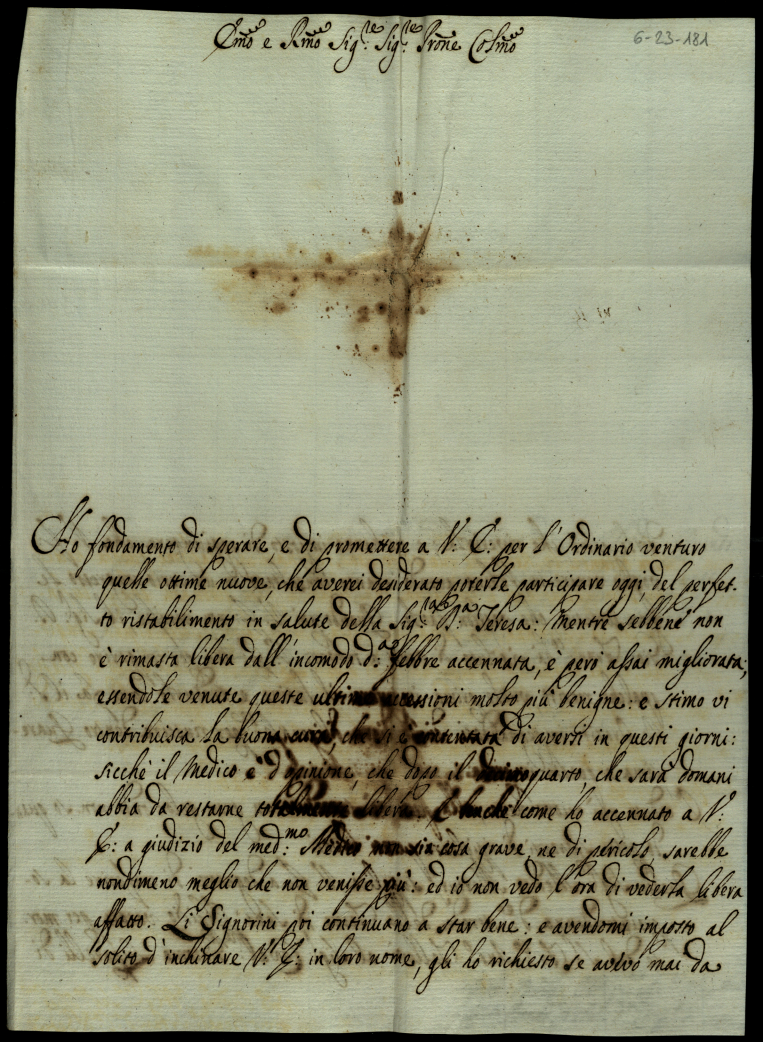 Em̃o e Rm̃o Sig:re Sig:re Pròne Colm̃o
6-23-181
Ho fondamento di sperare, e di promettere a V: E: per l'Ordinario venturo
quelle ottime nuove, che averei desiderato poterle participare oggi, del perfet-
to ristabilimento in salute della Sig:ra D:a Teresa: mentre sebbene non
è rimasta libera dall'incomodo d:a febbre accennata, è però assai migliorata;
essendole venute queste ultime accessioni molto più benigne: e stimo vi
contribuisca la buona cura, che si è intentata di aversi in questi giorni:
sicchè il Medico è d'opinione, che dopo il decimoquarto, che sarà domani
abbia da restarne totalmente libera. E benchè come ho accennato a V:
E: a giudizio del med:mo Medico non sia cosa grave, ne di pericolo, sarebbe
nondimeno meglio che non venisse più: ed io non vedo l'ora di vederla libera
affatto. Li Signorini poi continuano a star bene: e avendomi imposto al
solito d'inchinare V: E: in loro nome, gli ho richiesto se avevo mai da